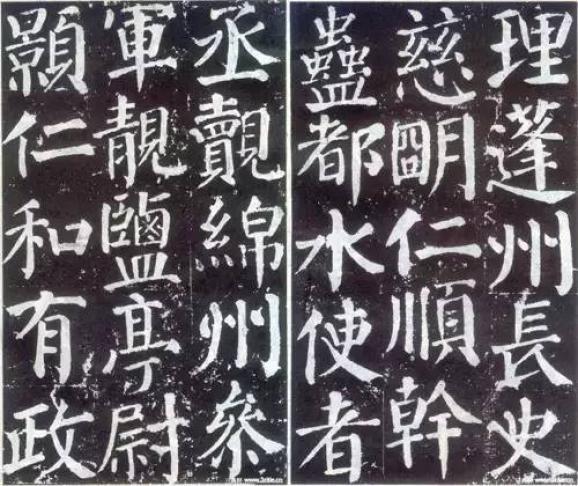 丞覿綿州參
軍靚鹽亭尉
顥仁和有政
理蓬州長史
慈朙仁順幹
蠱都水使者